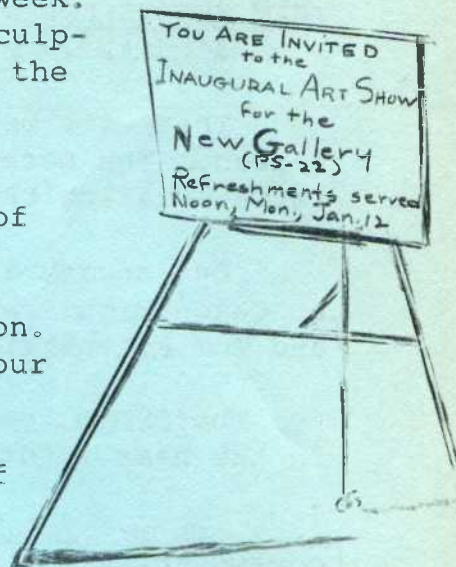 week.
culp-
the
of
on.
our
f
YOU ARE INVITED
to the
INAUGURAL ART SHOW
for the
New Gallery
(PS-22)
Refreshments served
Noon, Mon., Jan. 12